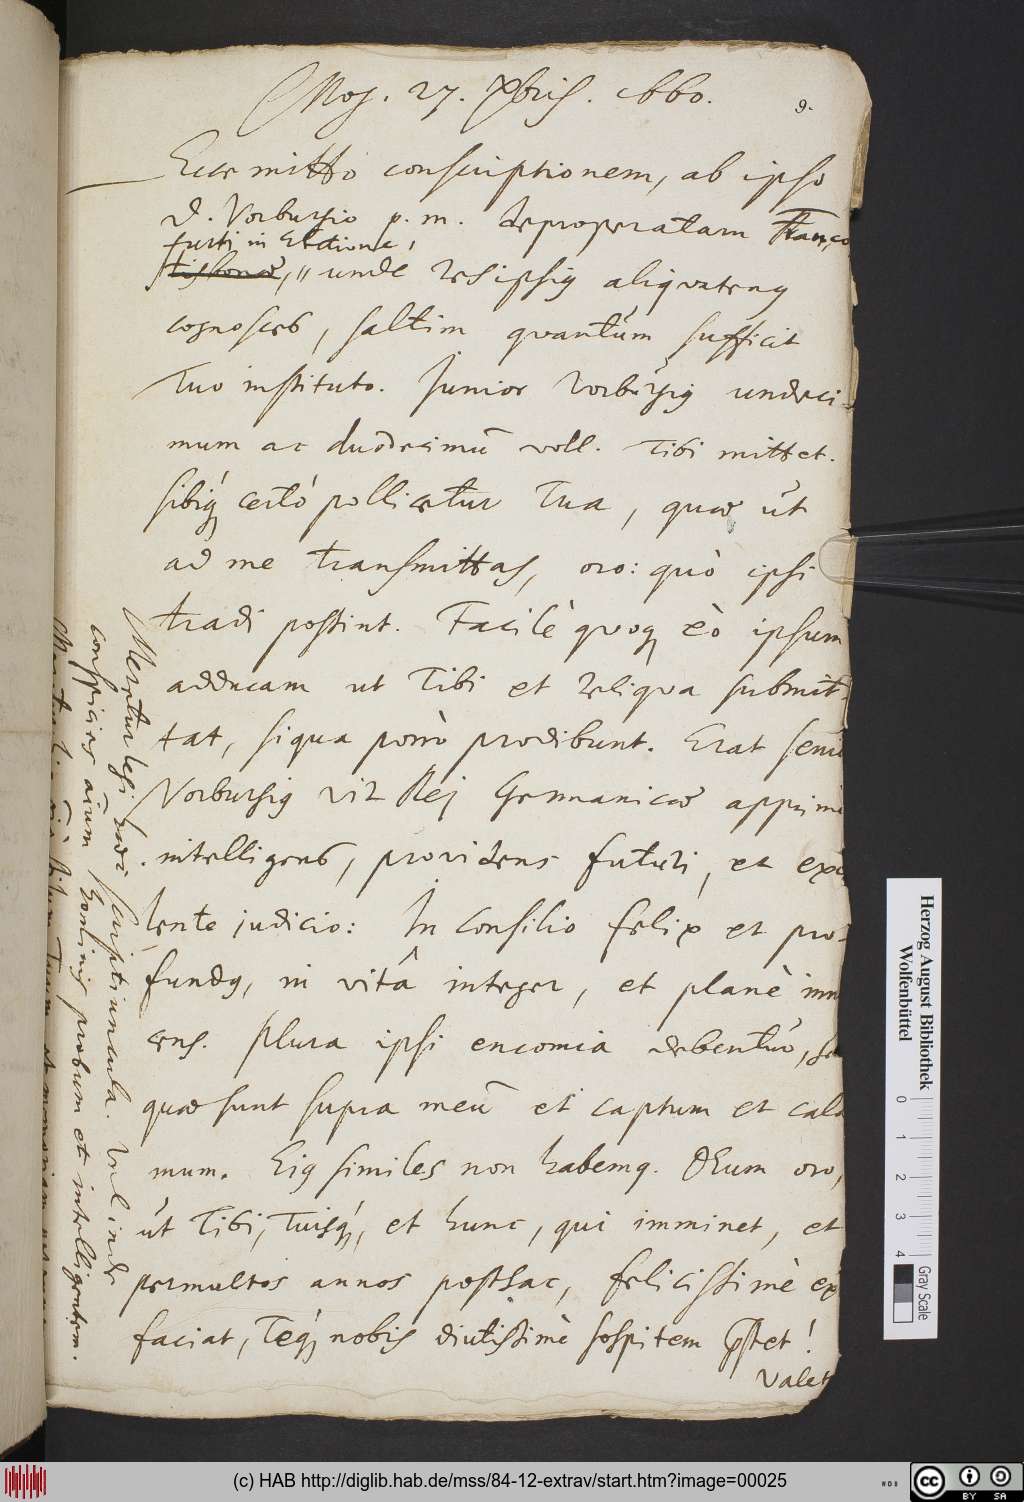 Mog. 27. Xbris. 1660.
9.
Ecce mitto conscriptionem, ab ipso
D. Vorburgio p. m. deproperatam Franco
furti in Electione,
unde res ipsius aliquatenus
cognosces, saltim quantum sufficit
Tuo instituto. Junior Vorburgius undeci-
mum ac duodecimū voll. Tibi mittet.
sibiq́ certò pollicetur Tua, quae ut
ad me transmittas, oro: quò ipsi
tradi possint. Facilè quoq eò ipsum
adducam ut Tibi et reliqua submit-
tat, siqua porrò prodibunt. Erat senior
Vorburgius vir Rej Germanicae apprime
intelligens, providens futuri, et
lente judicio: In consilio felix et pro-
fundus, in vitâ integer, et planè
cens. Plura ipsi encomia debentur,
quae sunt supra meū et captum et cala
mum. Ejus similes non habemus. DEum oro,
ut Tibi, Tuisq́, et hunc, qui imminet, et
permultos annos posthac, felicissimè
faciat, Teq́ nobis diutissimè sospitem p̄stet!
Valet
Meretur legi scriptiuncula. Vel inde
conspicies aīum hominis probum et intelligentem.
Herzog August Bibliothek
Wolfenbüttel
0 1 2 3 4
Gray Scale
(c) HAB http://diglib.hab.de/mss/84-12-extrav/start.htm?image=00025
WDB
cc BY SA